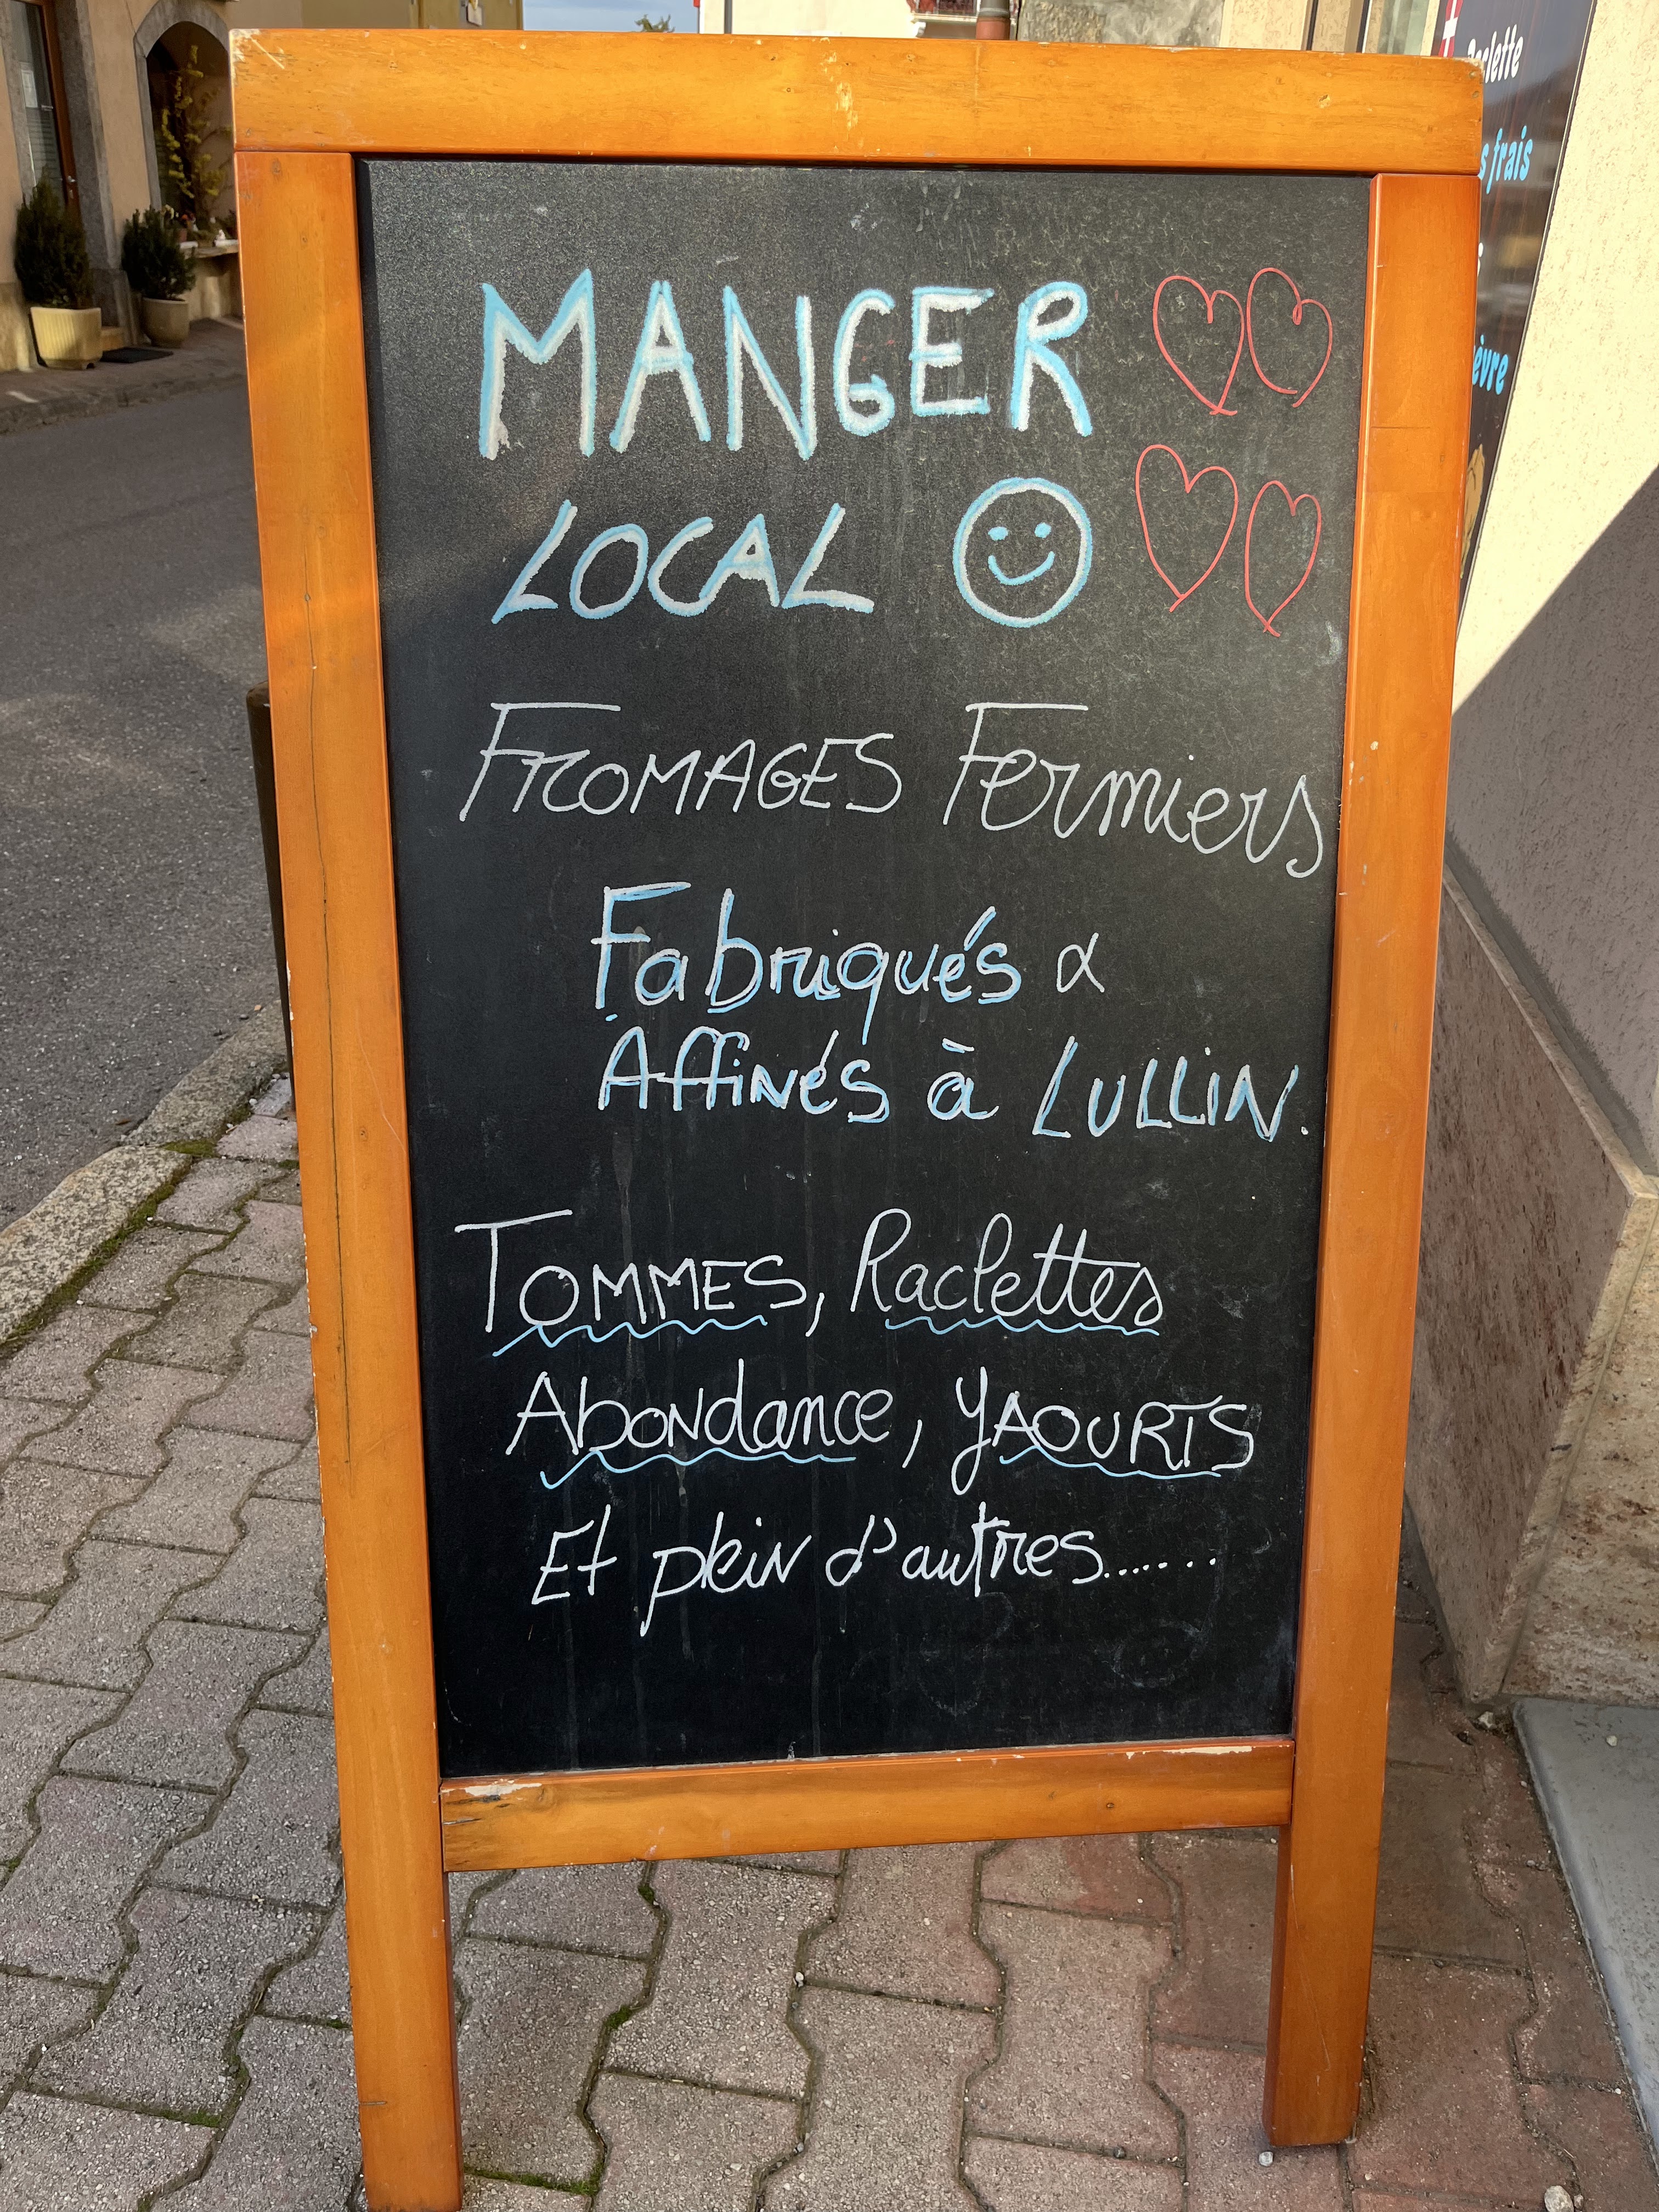 MANGER
LOCAL
FROMAGES Fermiers
Fabriqués &
Affinés à LULLIN.
TOMMES, Raclettes
Abondance, YAOURTS
Et plein d'autres......
frais